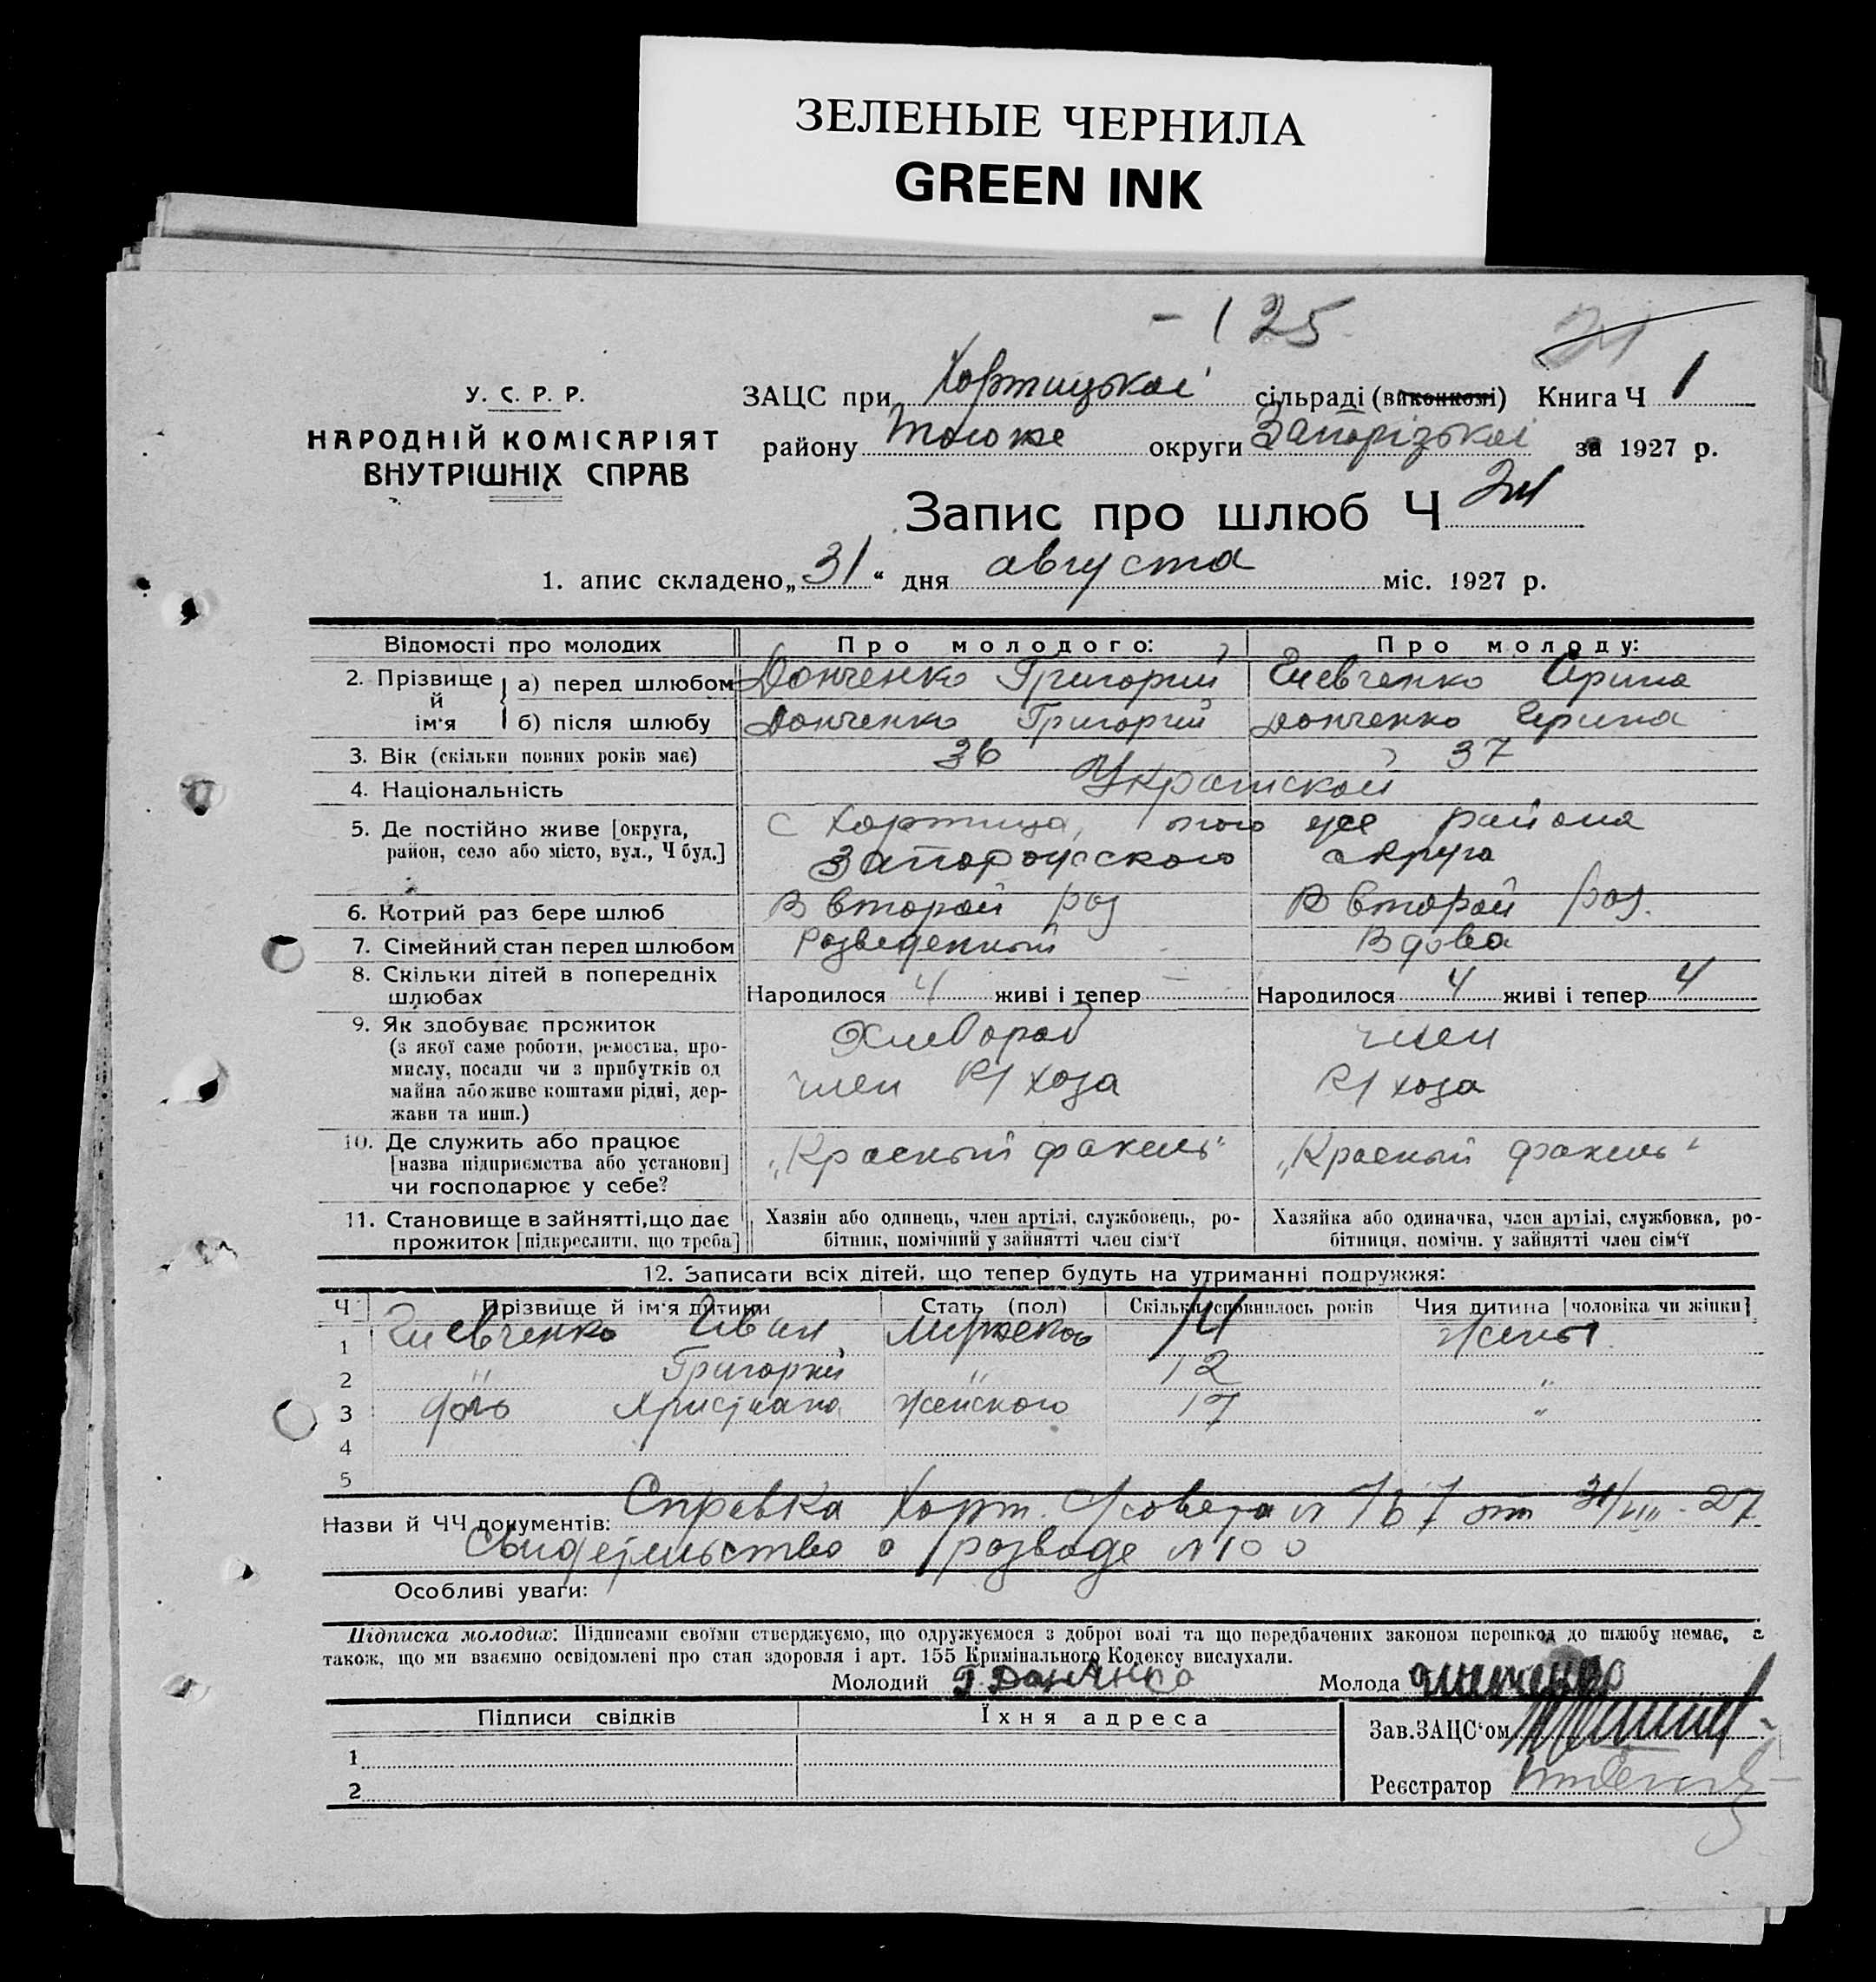 ЗЕЛЕНЫЕ ЧЕРНИЛА
GREEN INK
- 125
У. С. Р. Р.
НАРОДНІЙ КОМІСАРІЯТ
ВНУТРІШНІХ СПРАВ
ЗАЦС при Хортицькоі сільраді (виконкомі) Книга Ч 1
району тогоже округи Запорізькоі за 1927 р.
Запис про шлюб Ч
1. апис складено „31“ дня августа міс. 1927 р.
Відомості про молодих Про молодого: Про молоду:
2. Прізвище й ім'я а) перед шлюбом Донченко Григорий Шевченко Ирина
б) після шлюбу Донченко Григорий Донченко Ирина
3. Вік (скільки повних років має) 36 37
4. Національність Украинской
5. Де постійно живе [округа, с Хортица, того же района
район, село або місто, вул., Ч буд.] Запорожского округа
6. Котрий раз бере шлюб Второй раз Второй раз.
7. Сімейний стан перед шлюбом Розведенный Вдова
8. Скільки дітей в попередніх
шлюбах Народилося 4 живі і тепер — Народилося 4 живі і тепер 4
9. Як здобуває прожиток Хлебороб член
(з якої саме роботи, ремества, про-
мислу, посади чи з прибутків од член К/хоза К/хоза
майна або живе коштами рідні, дер-
жави та инш.)
10. Де служить або працює
[назва підприємства або установи] „Красный факель“ „Красный факель“
чи господарює у себе?
11. Становище в зайнятті, що дає Хазяін або одинець, член артілі, службовець, ро- Хазяйка або одиначка, член артілі, службовка, ро-
прожиток [підкреслити, що треба] бітник, помічний у зайнятті член сім'ї бітниця, помічн. у зайнятті член сім'ї
12. Записати всіх дітей, що тепер будуть на утриманні подружжя:
Ч Прізвище й ім'я дитини Стать (пол) Скільки сповнилось років Чия дитина [чоловіка чи жінки]
1 Шевченко Иван Мужского 14 Жены
2 " Григорий " 12 "
3 дочь Христиана Женского 17 "
4
5
Назви й ЧЧ документів: Справка Хорт. с/совета № 767 от 31/VIII-27
Свидетельство о розводе №100
Особливі уваги:
Підписка молодих: Підписами своїми стверджуємо, що одружуємося з доброї волі та що передбачених законом перешкод до шлюбу немає, а
також, що ми взаємно освідомлені про стан здоровля і арт. 155 Кримінального Кодексу вислухали.
Молодий Г Донченко Молода
Підписи свідків Їхня адреса Зав.ЗАЦС'ом
1
2 Реєстратор